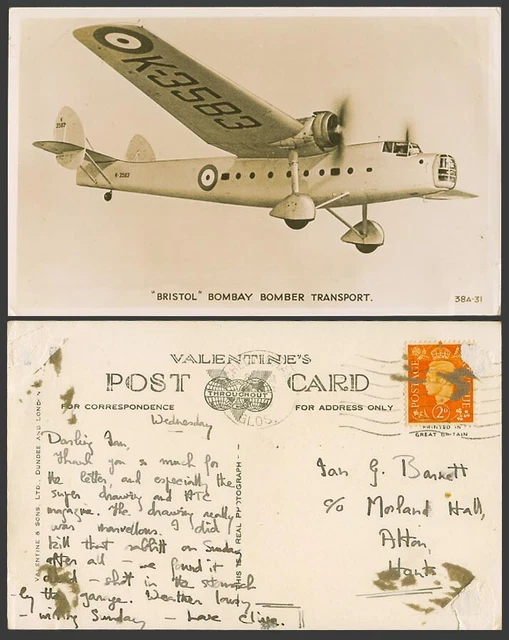 K-3583
K
3583
K-3583
"BRISTOL" BOMBAY BOMBER TRANSPORT.
38A-31
VALENTINE'S
POST CARD
THROUGHOUT
GLOS.
FOR CORRESPONDENCE
FOR ADDRESS ONLY
POSTAGE
REVENUE
2D
PRINTED IN
GREAT BRITAIN
VALENTINE & SONS, LTD., DUNDEE AND LONDON
THIS IS A REAL PHOTOGRAPH
Wednesday
Darling Ian,
Thank you so much for
the letter, and especially the
super drawing and ATC
magazine. The drawing really
was marvellous. I did
kill that rabbit on Sunday
after all — we found it
dead — shot in the stomach
— by the garage. Weather lousy
— Sunday — Love Clive.
Ian G. Barnett
c/o Morland Hall,
Alton,
Hants